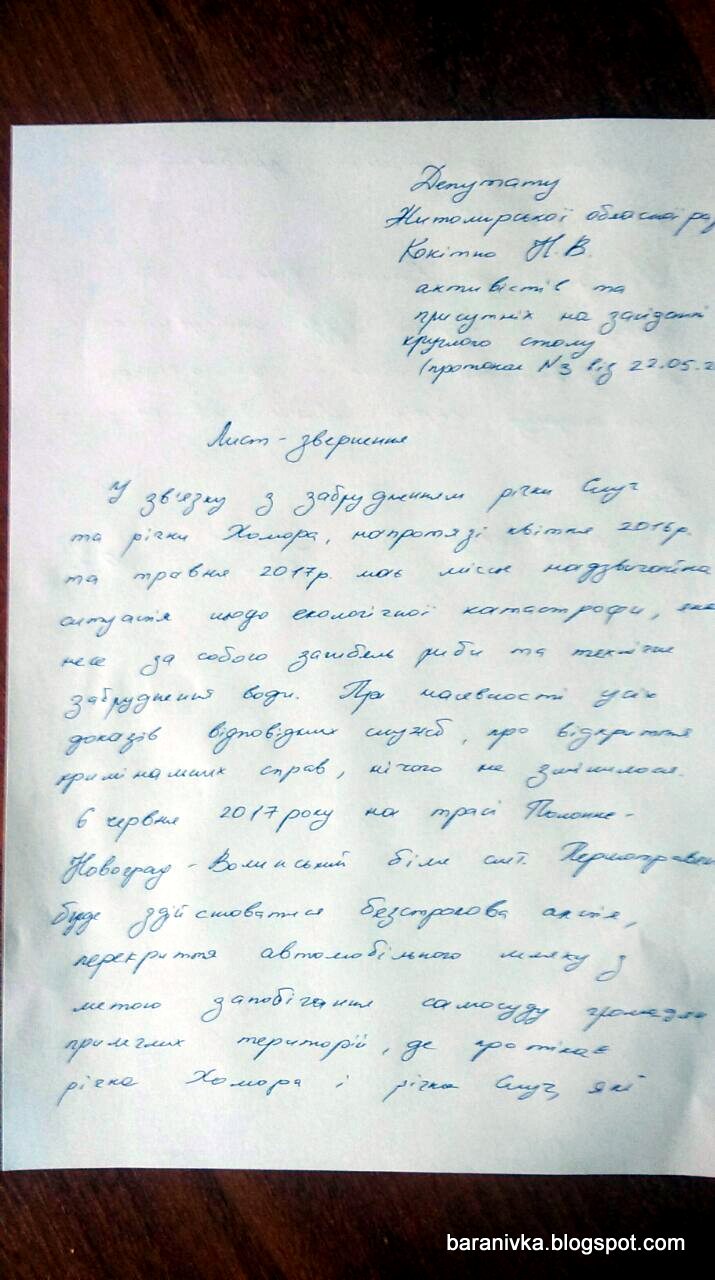 Депутату
Житомирської обласної рад
Кокітко Н.В.
активістів та
присутніх на засіданні
круглого столу
(протокол №3 від 22.05.2
Лист-звернення
У зв'язку з забрудненням річки Случ
та річки Хомора, напротязі квітня 2016р.
та травня 2017р. має місце надзвичайна
ситуація щодо екологічної катастрофи, яка
несе за собою загибель риби та технічне
забруднення води. При наявності усіх
доказів відповідних служб, про відкриття
кримінальних справ, нічого не змінилося.
6 червня 2017 року на трасі Полонне-
Новоград-Волинський біля смт. Першотравен
буде здійснюватися безстрокова акція,
перекриття автомобільного шляху з
метою запобігання самосуду громадян
прилеглих територій, де протікає
річка Хомора і річка Случ, які
baranivka.blogspot.com